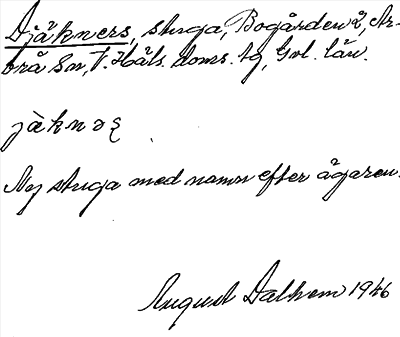 Djäkners, stuga, Bogården 2, Ar-
brå Sn, V. Häls. doms. tg, Gvl. län.
jäknəʂ
Ny stuga med namn efter ägaren.
August Dalhem 1946